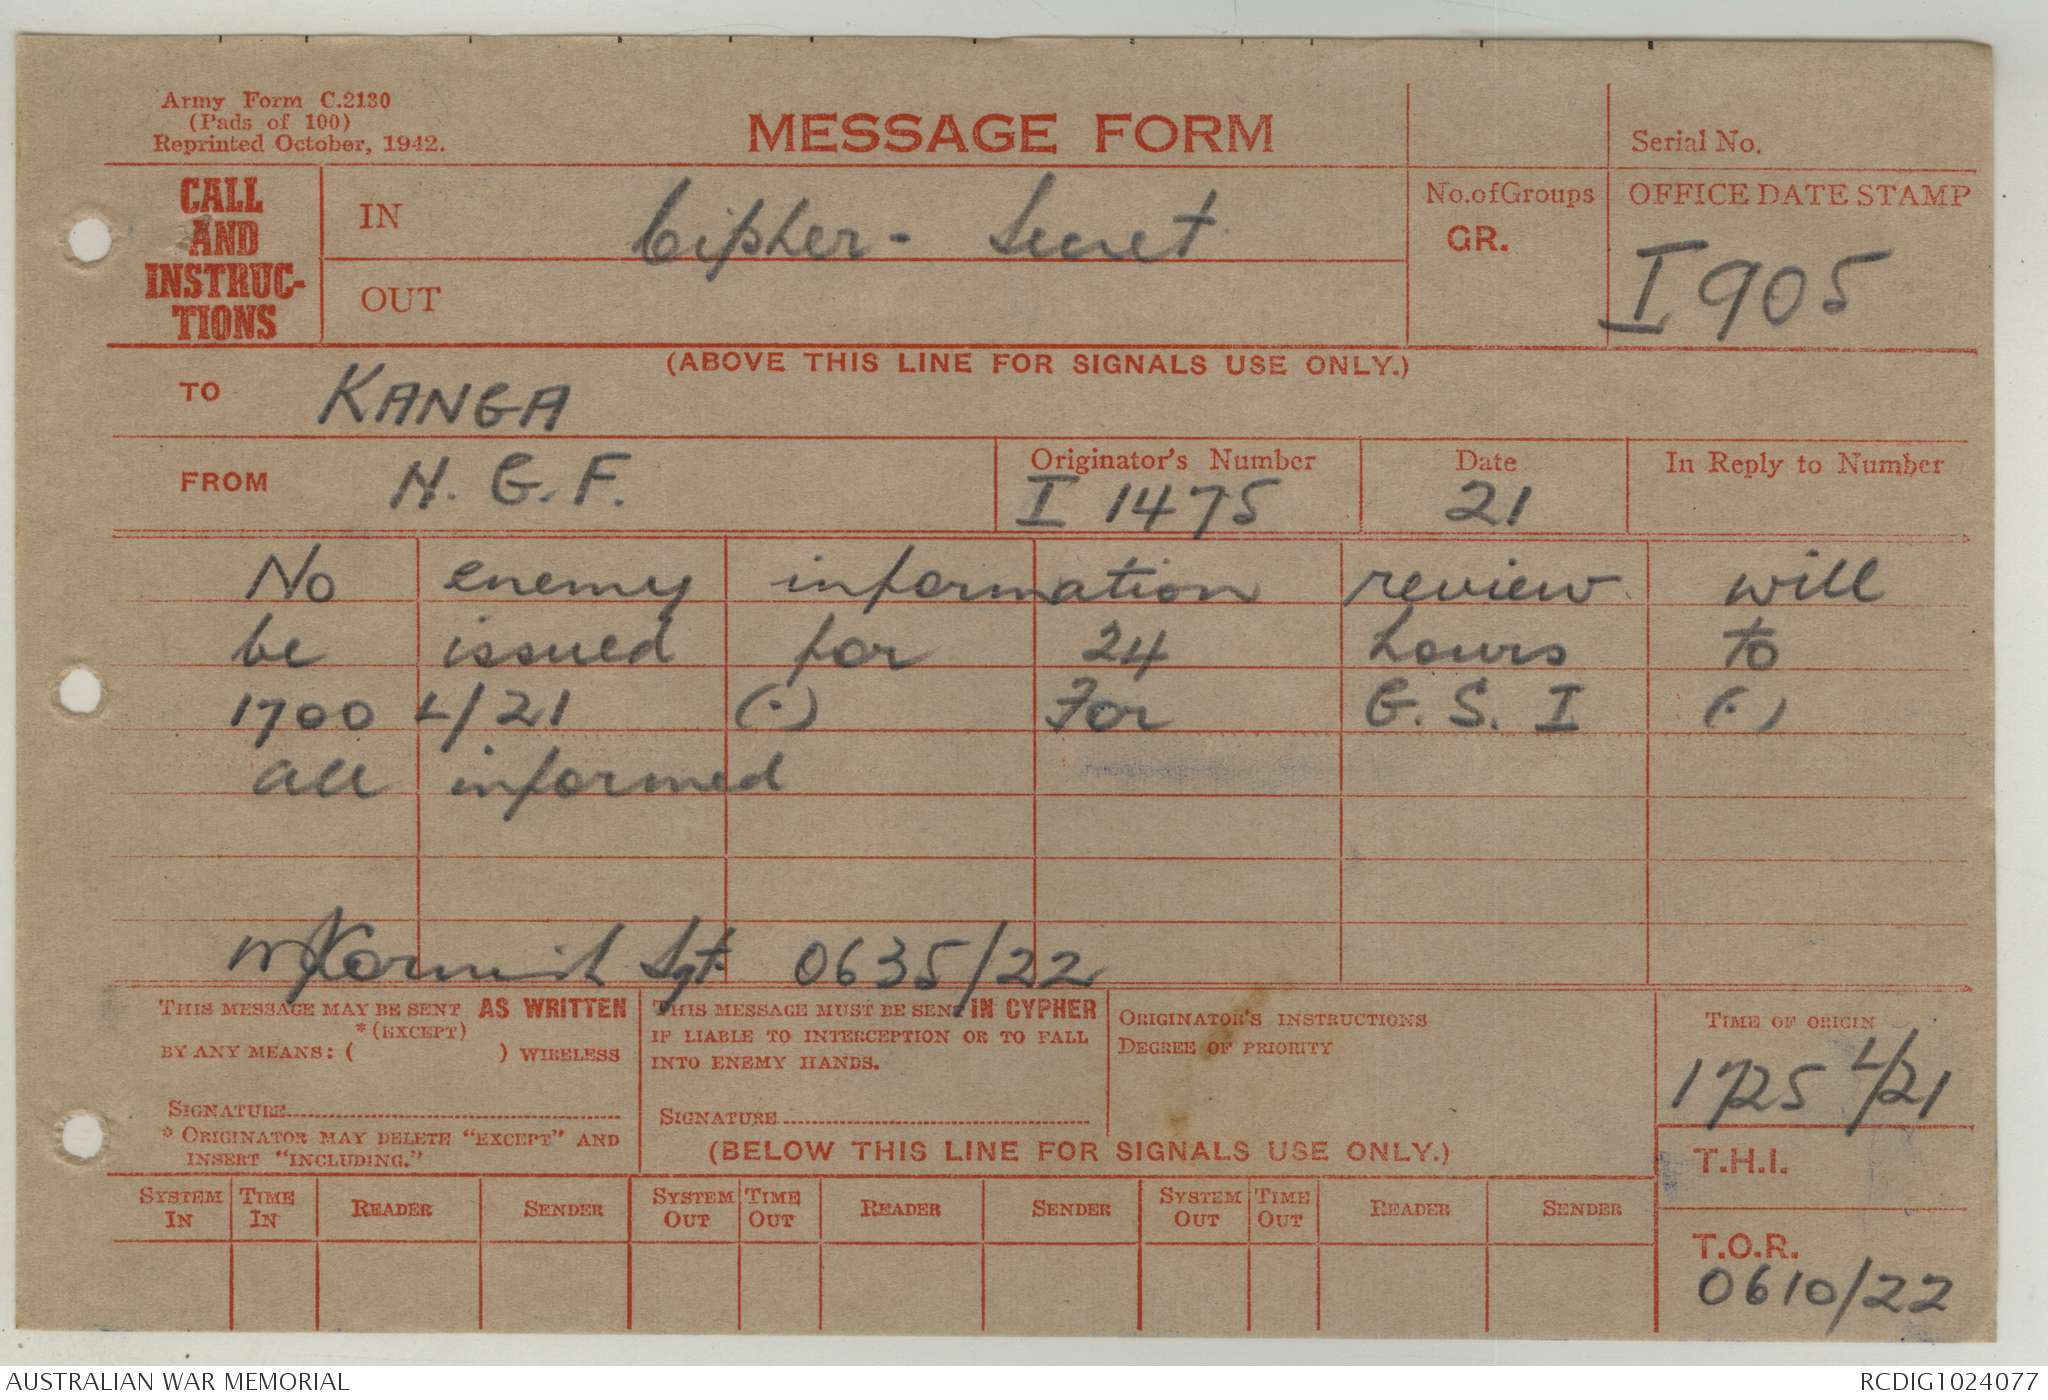 Army Form C.2130
(Pads of 100)
Reprinted October, 1942.
MESSAGE FORM
Serial No.
CALL
AND
INSTRUC-
TIONS
IN
Cipher - Secret
OUT
No. of Groups
GR.
OFFICE DATE STAMP
I 905
(ABOVE THIS LINE FOR SIGNALS USE ONLY.)
TO KANGA
FROM N. G. F.
Originator's Number
I 1475
Date
21
In Reply to Number
No enemy information review will
be issued for 24 hours to
1700 L/21 (.) For G. S. I (.)
all informed
McKormish Sgt. 0635/22
THIS MESSAGE MAY BE SENT AS WRITTEN
*(EXCEPT)
BY ANY MEANS: ( ) WIRELESS
SIGNATURE
* ORIGINATOR MAY DELETE "EXCEPT" AND
INSERT "INCLUDING."
THIS MESSAGE MUST BE SENT IN CYPHER
IF LIABLE TO INTERCEPTION OR TO FALL
INTO ENEMY HANDS.
SIGNATURE
ORIGINATOR'S INSTRUCTIONS
DEGREE OF PRIORITY
TIME OF ORIGIN
1725 L/21
(BELOW THIS LINE FOR SIGNALS USE ONLY.)
T.H.I.
SYSTEM IN TIME IN READER SENDER SYSTEM OUT TIME OUT READER SENDER SYSTEM OUT TIME OUT READER SENDER
T.O.R.
0610/22
AUSTRALIAN WAR MEMORIAL
RCDIG1024077